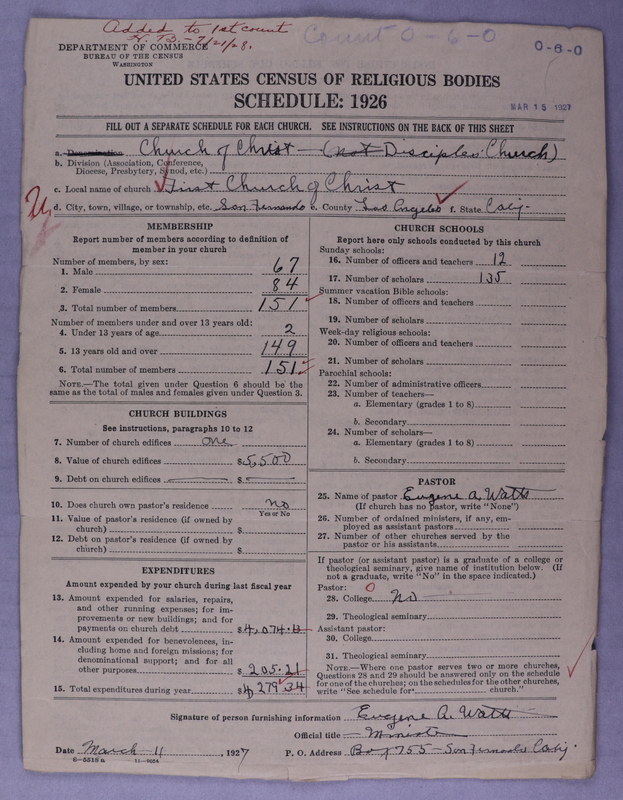 Added to 1st count
H.B. - 7/21/28.
Count 0-6-0
0-6-0
DEPARTMENT OF COMMERCE
BUREAU OF THE CENSUS
WASHINGTON
UNITED STATES CENSUS OF RELIGIOUS BODIES
SCHEDULE: 1926
MAR 15 1927
FILL OUT A SEPARATE SCHEDULE FOR EACH CHURCH. SEE INSTRUCTIONS ON THE BACK OF THIS SHEET
a. Denomination Church of Christ — (not Disciples Church)
b. Division (Association, Conference,
Diocese, Presbytery, Synod, etc.)
c. Local name of church First Church of Christ
d. City, town, village, or township, etc. San Fernando e. County Los Angeles f. State Calif.
MEMBERSHIP
Report number of members according to definition of
member in your church
Number of members, by sex:
1. Male 67
2. Female 84
3. Total number of members 151
Number of members under and over 13 years old:
4. Under 13 years of age 2
5. 13 years old and over 149
6. Total number of members 151
NOTE.—The total given under Question 6 should be the
same as the total of males and females given under Question 3.
CHURCH BUILDINGS
See instructions, paragraphs 10 to 12
7. Number of church edifices one
8. Value of church edifices $5,500
9. Debt on church edifices $
10. Does church own pastor's residence no
Yes or No
11. Value of pastor's residence (if owned by
church) $
12. Debt on pastor's residence (if owned by
church) $
EXPENDITURES
Amount expended by your church during last fiscal year
13. Amount expended for salaries, repairs,
and other running expenses; for im-
provements or new buildings; and for
payments on church debt $4,074.13
14. Amount expended for benevolences, in-
cluding home and foreign missions; for
denominational support; and for all
other purposes $205.21
15. Total expenditures during year $4,279.34
CHURCH SCHOOLS
Report here only schools conducted by this church
Sunday schools:
16. Number of officers and teachers 12
17. Number of scholars 135
Summer vacation Bible schools:
18. Number of officers and teachers
19. Number of scholars
Week-day religious schools:
20. Number of officers and teachers
21. Number of scholars
Parochial schools:
22. Number of administrative officers
23. Number of teachers—
a. Elementary (grades 1 to 8)
b. Secondary
24. Number of scholars—
a. Elementary (grades 1 to 8)
b. Secondary
PASTOR
25. Name of pastor Eugene A. Watts
(If church has no pastor, write "None")
26. Number of ordained ministers, if any, em-
ployed as assistant pastors
27. Number of other churches served by the
pastor or his assistants
If pastor (or assistant pastor) is a graduate of a college or
theological seminary, give name of institution below. (If
not a graduate, write "No" in the space indicated.)
Pastor: 0
28. College No
29. Theological seminary
Assistant pastor:
30. College
31. Theological seminary
NOTE.—Where one pastor serves two or more churches,
Questions 28 and 29 should be answered only on the schedule
for one of the churches; on the schedules for the other churches,
write "See schedule for church."
Signature of person furnishing information Eugene A. Watts
Official title Minister
Date March 11, 1927 P. O. Address Box 755 - San Fernando Calif.
8-5518 a 11-9064